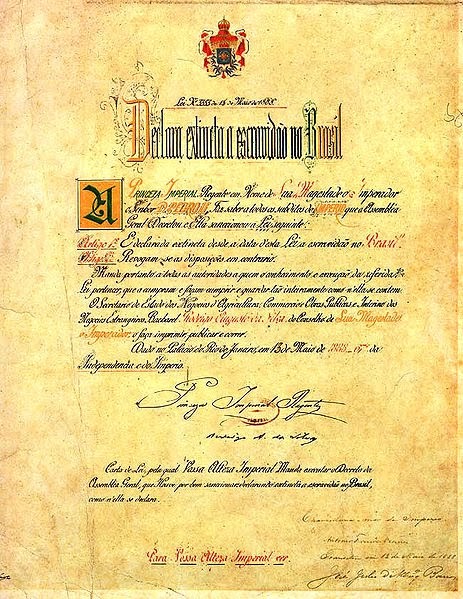 Lei Nº 3353 de 13 de Maio de 1888.
Declara extincta a escravidão no Brasil
A PRINCEZA IMPERIAL Regente em Nome de Sua Magestade o Imperador
o Senhor D. PEDRO II, Faz saber a todos os subditos do IMPERIO que a Assembléa
Geral Decretou e Ella sanccionou a Lei seguinte:
Artigo 1º É declarada extincta desde a data desta Lei a escravidão no Brasil
Artigo 2º Revogam-se as disposições em contrario.
Manda portanto a todas as autoridades a quem o conhecimento e execução da referida
Lei pertencer, que a cumpram e façam cumprir e guardar tão inteiramente como n'ella se contem.
O Secretario de Estado dos Negocios d'Agricultura, Commercio e Obras Publicas e Interino dos
Negocios Estrangeiros, Bacharel Rodrigo Augusto da Silva, do Conselho de Sua Magestade
o Imperador, o faça imprimir, publicar e correr.
Dado no Palacio do Rio de Janeiro, em 13 de Maio de 1888 67º da
Independencia e do Imperio.
Princeza Imperial Regente
Rodrigo A. da Silva
Carta de Lei, pela qual Vossa Alteza Imperial Manda executar o Decreto da
Assembléa Geral, que Houve por bem sanccionar, declarando extincta a escravidão no Brasil,
como n'ella se declara.
Para Vossa Alteza Imperial ver.